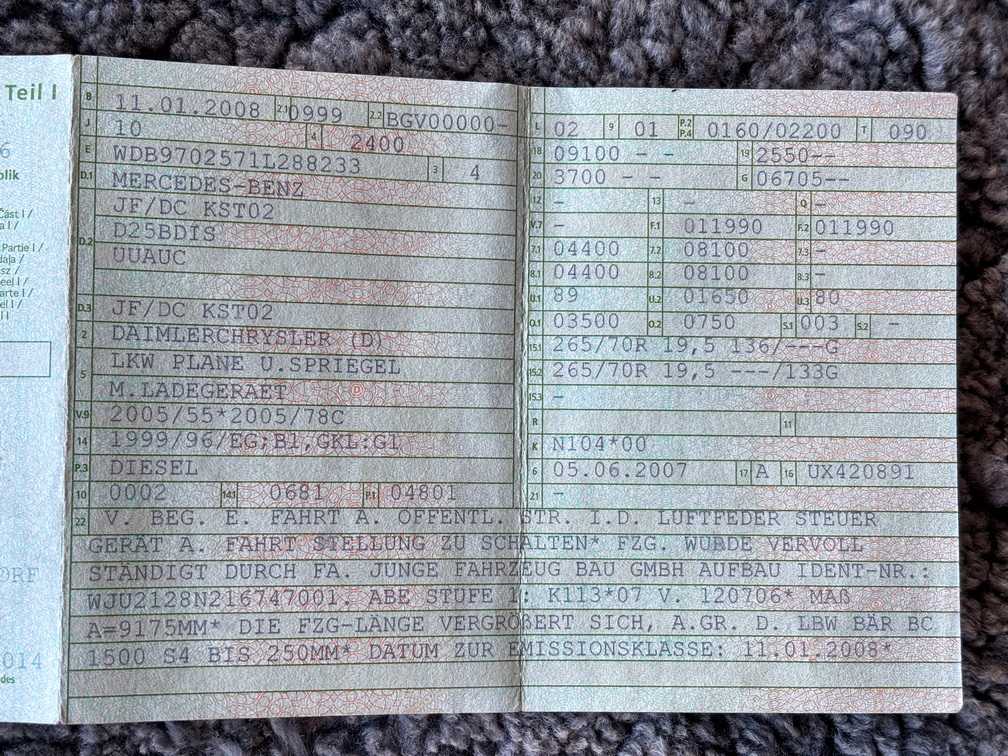 Teil I
6
olik
Část I /
a I /
Partie I /
daļa /
sz /
eel I /
arte I /
el I /
l I
ORF
014
des
B 11.01.2008 2.1 0999 2.2 BGV00000-
J 10 4 2400
E WDB9702571L288233 3 4
D.1 MERCEDES-BENZ
JF/DC KST02
D25BDIS
D.2 UUAUC
D.3 JF/DC KST02
2 DAIMLERCHRYSLER (D)
LKW PLANE U.SPRIEGEL
5 M.LADEGERAET
V.9 2005/55*2005/78C
14 1999/96/EG;B1,GKL:G1
P.3 DIESEL
10 0002 14.1 0681 P.1 04801
L 02 9 01 P.2 P.4 0160/02200 T 090
18 09100 - - 19 2550--
20 3700 - - G 06705--
12 - 13 - Q -
V.7 - F.1 011990 F.2 011990
7.1 04400 7.2 08100 7.3 -
8.1 04400 8.2 08100 8.3 -
U.1 89 U.2 01650 U.3 80
O.1 03500 O.2 0750 S.1 003 S.2 -
15.1 265/70R 19,5 136/---G
15.2 265/70R 19,5 ---/133G
15.3 -
R 11
K N104*00
6 05.06.2007 17 A 16 UX420891
21 -
22 V. BEG. E. FAHRT A. ÖFFENTL. STR. I.D. LUFTFEDER STEUER
GERÄT A. FAHRT STELLUNG ZU SCHALTEN* FZG. WURDE VERVOLL
STÄNDIGT DURCH FA. JUNGE FAHRZEUG BAU GMBH AUFBAU IDENT-NR.:
WJU2128N216747001. ABE STUFE 1: K113*07 V. 120706* MAß
A=9175MM* DIE FZG-LÄNGE VERGRÖßERT SICH, A.GR. D. LBW BÄR BC
1500 S4 BIS 250MM* DATUM ZUR EMISSIONSKLASSE: 11.01.2008*